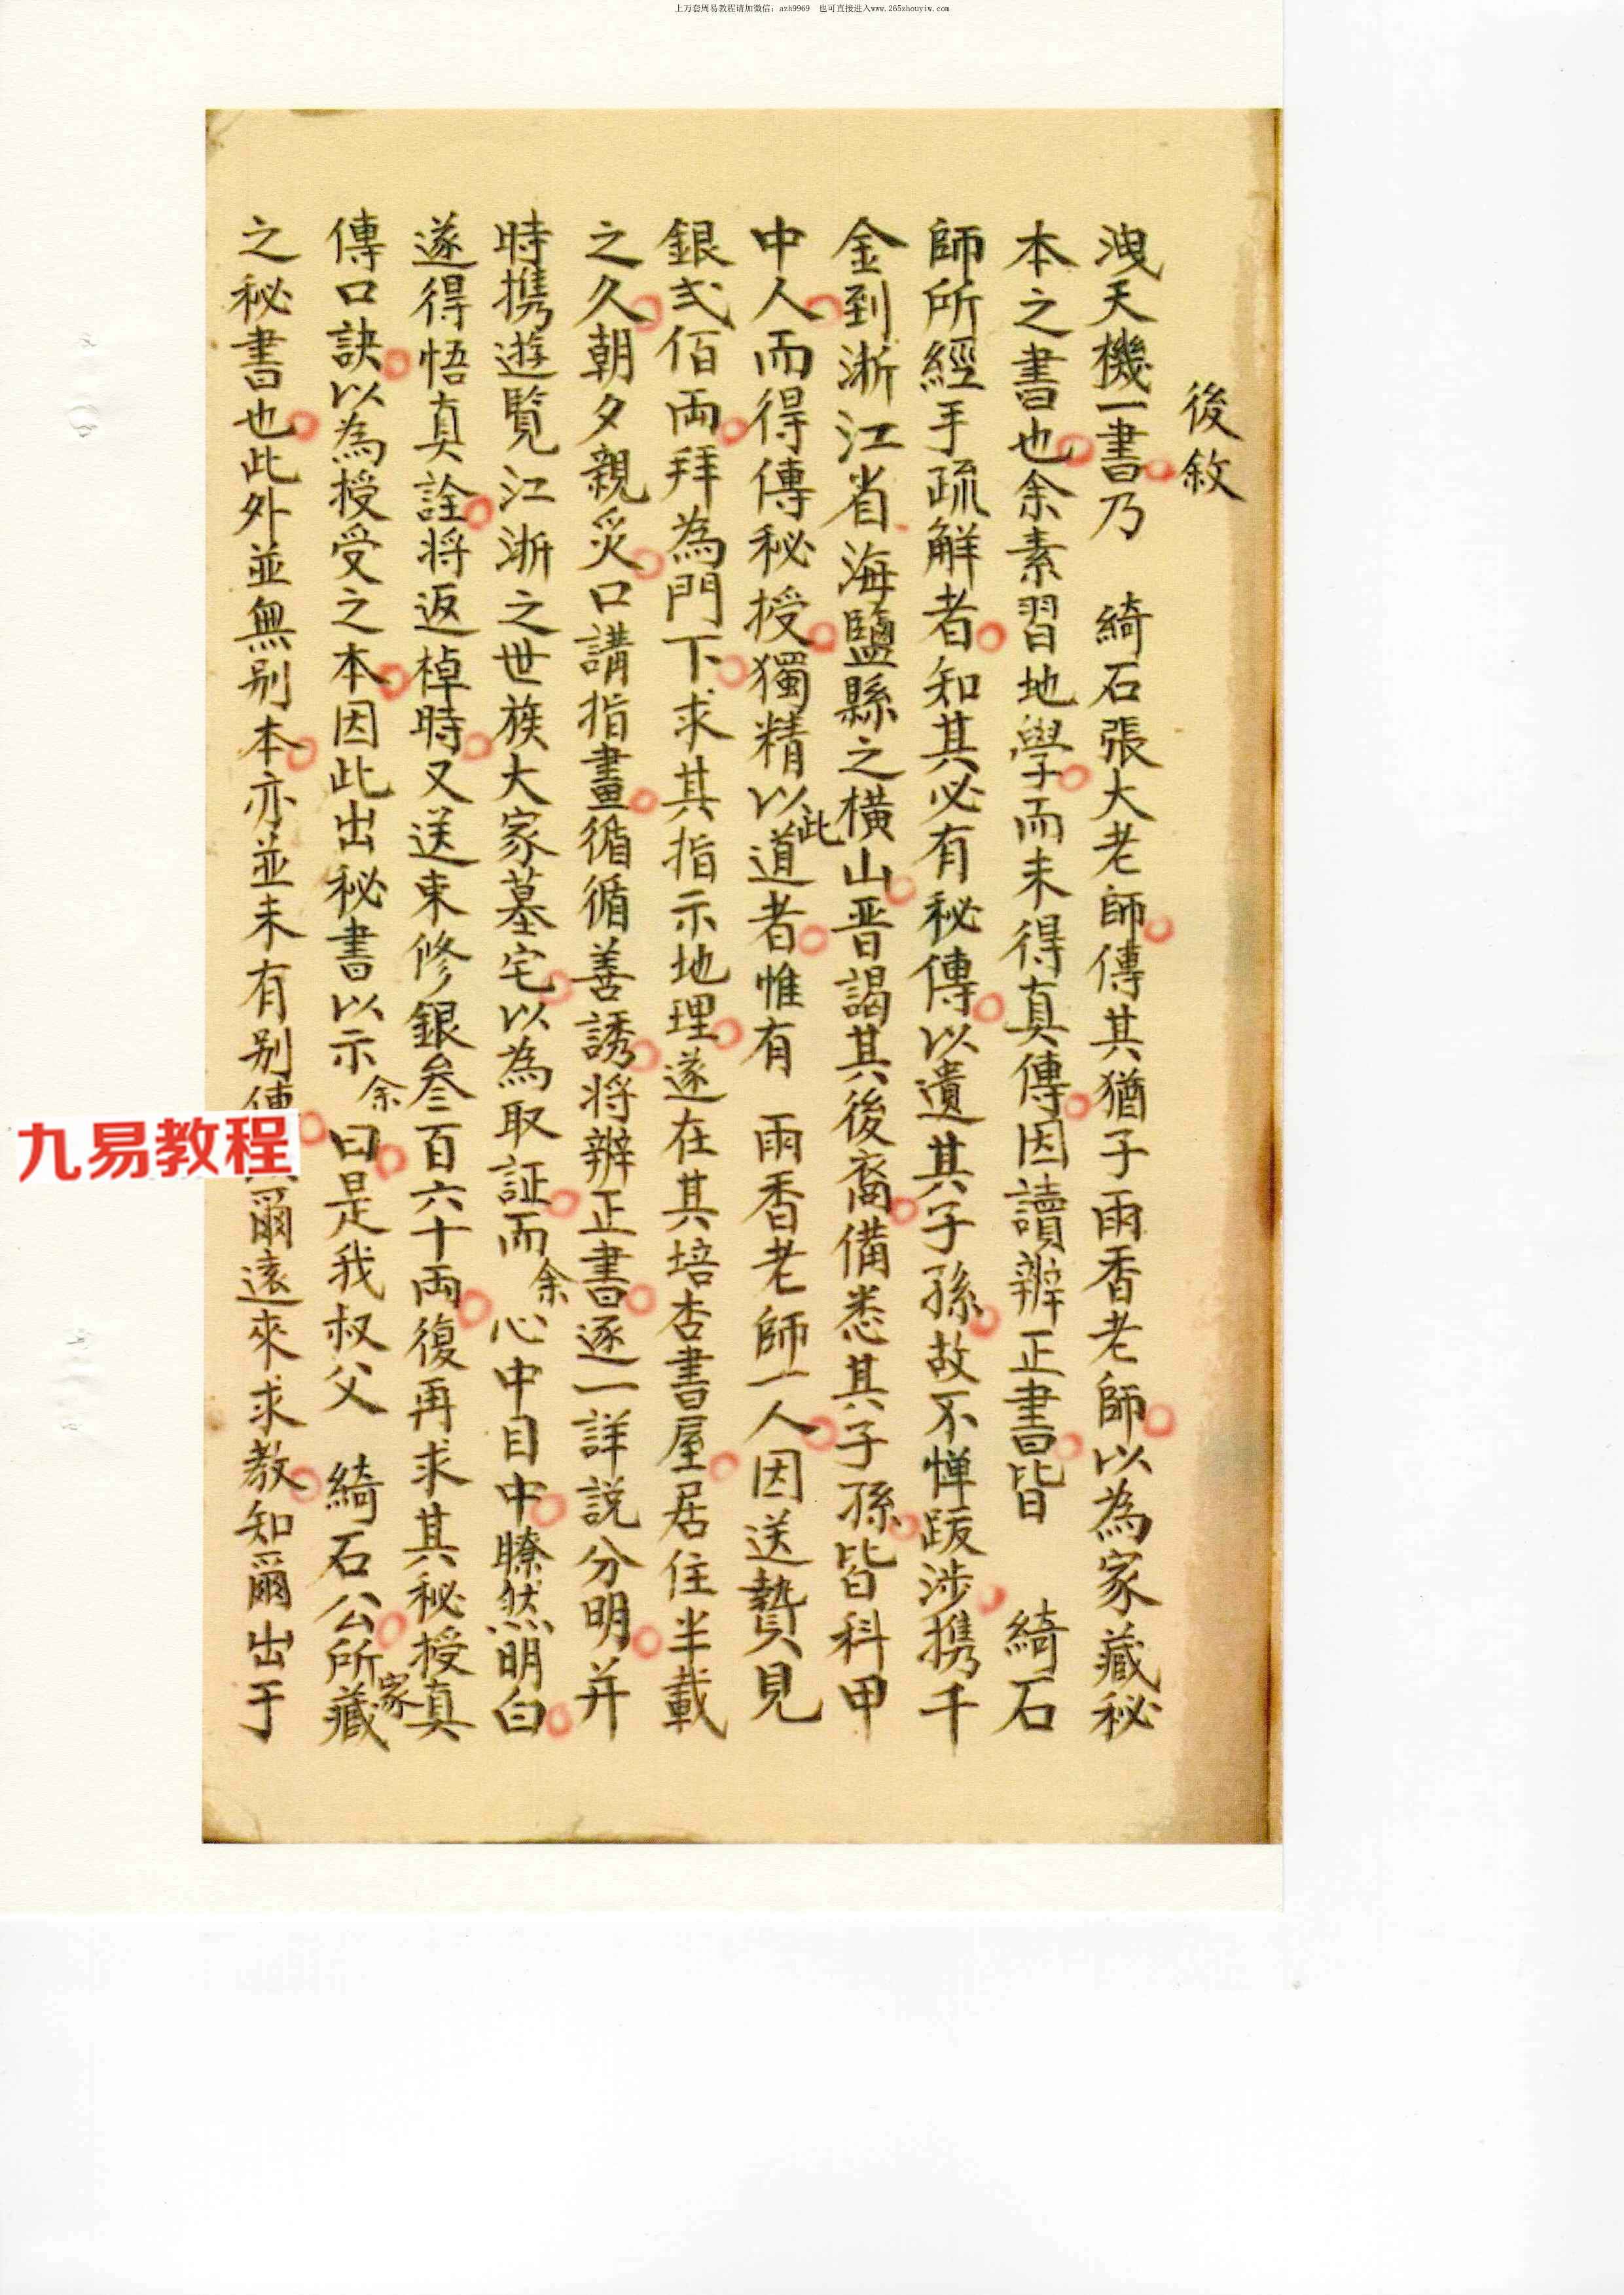 上万套周易教程请加微信：azh9969 也可直接进入www.265zhouyiw.com
後敘
洩天機一書乃 綺石張大老師傳其猶子雨香老師以為家藏秘
本之書也余素習地學而未得真傳因讀辦正書皆 綺石
師所經手疏解者和其必有秘傳以遺其子孫故不惮跋涉携千
金到浙江省海鹽縣之橫山晋謁其後裔備悉其子孫皆科甲
中人而得傳秘授獨精以此道者惟有 雨香老師一人因送贄見
銀弍佰両拜為門下求其指示地理遂在其培杏書屋居住半載
之久朝夕親炙口講指畫循循善誘将辦正書逐一詳説分明并
時携遊覧江浙之世族大家墓宅以為取証而余心中目中瞭然明白
遂得悟真詮将返棹時又送束修銀叁百六十両復再求其秘授真
傳口訣以為授受之本因此出秘書以示余曰是我叔父 綺石公所家藏
之秘書也此外並無别本亦並未有别傳爾遠來求教知爾出于
九易教程